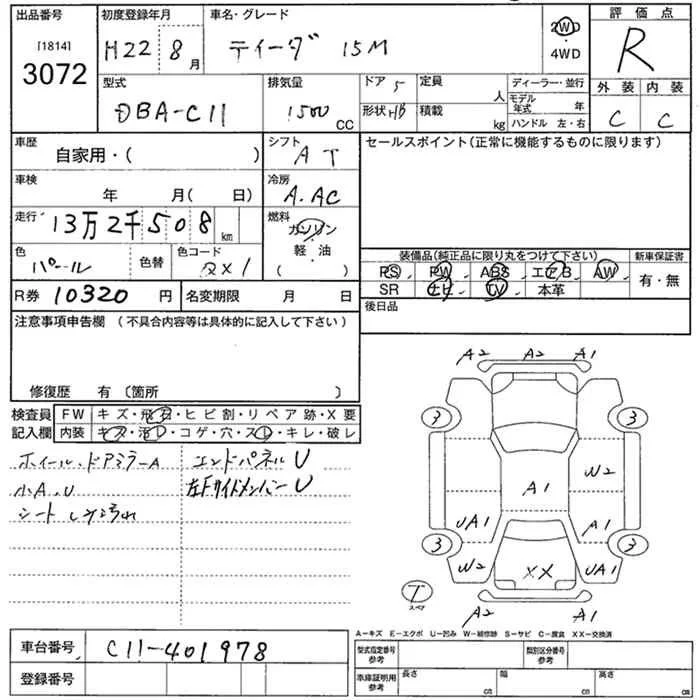 出品番号 初度登録年月 車名・グレード 評価点
[1814]
3072
H22 8月 ティーダ 15M 2WD・4WD R
型式 排気量 ドア 5 定員 人 ディーラー・並行 外装 内装
DBA-C11 1500 CC 形状 HB 積載 kg モデル年式 年
ハンドル 左・右 C C
車歴 自家用・( ) シフト AT セールスポイント(正常に機能するものに限ります)
車検 年 月(日) 冷房 A.AC
走行 13万2千508 km 燃料 ガソリン・軽油 ( )
色 パール 色替 色コード QX1
装備品(純正品に限り丸をつけて下さい) 新車保証書
PS PW ABS エアB AW 有・無
SR ナビ TV 本革
R券 10320 円 名変期限 月 日 後日品
注意事項申告欄 (不具合内容等は具体的に記入して下さい)
修復歴 有 〔箇所 〕
検査員 FW キズ・飛石・ヒビ割・リペア跡・X要
記入欄 内装 キズ・汚レ・コゲ・穴・スレ・キレ・破レ
ホイール・ドアミラーA エンドパネルU
小A.U 左FサイドメンバーU
シート
A2 A2 A1
3 3
A1 W2
UA1 A1
3 3
W2 XX UA1
T スペア
A2 A1
A-キズ E-エクボ U-凹み W-補修跡 S-サビ C-腐食 XX-交換済
車台番号 C11-401978
登録番号
型式指定番号 参考 類別区分番号 参考
車庫証明用 参考 長さ cm 幅 cm 高さ cm